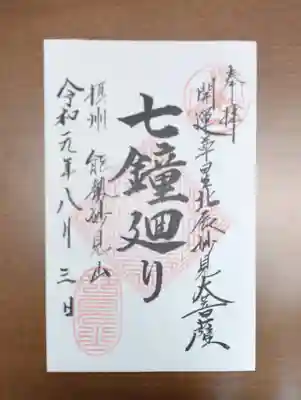 奉拝
開運革星北辰妙見大菩薩
七鐘廻り
摂州 能勢妙見山
令和元年八月三日